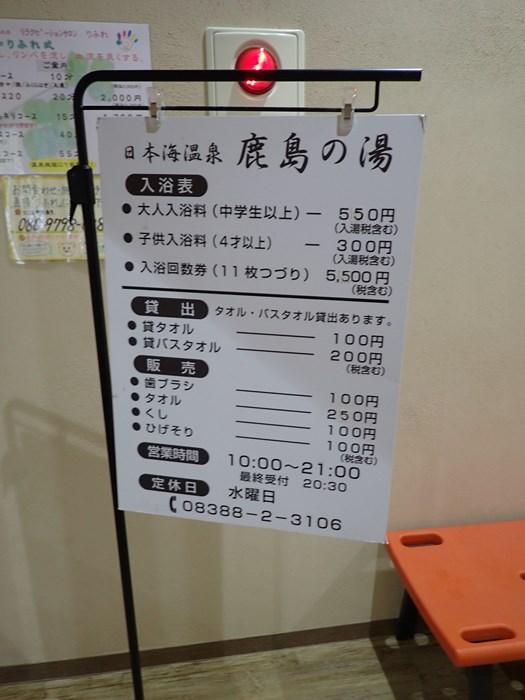 リラクゼーションサロン りふれ
日本海温泉 鹿島の湯
入浴表
● 大人入浴料(中学生以上) ー 550円
(入湯税含む)
● 子供入浴料(4才以上) ー 300円
(入湯税含む)
● 入浴回数券(11枚つづり) 5,500円
(税含む)
貸 出 タオル・バスタオル貸出あります。
● 貸タオル 100円
● 貸バスタオル 200円
(税含む)
販 売
● 歯ブラシ 100円
● タオル 250円
● くし 100円
● ひげそり 100円
(税含む)
営業時間 10:00〜21:00
最終受付 20:30
定休日 水曜日
08388-2-3106
ご案内
10分
20分 2,000円